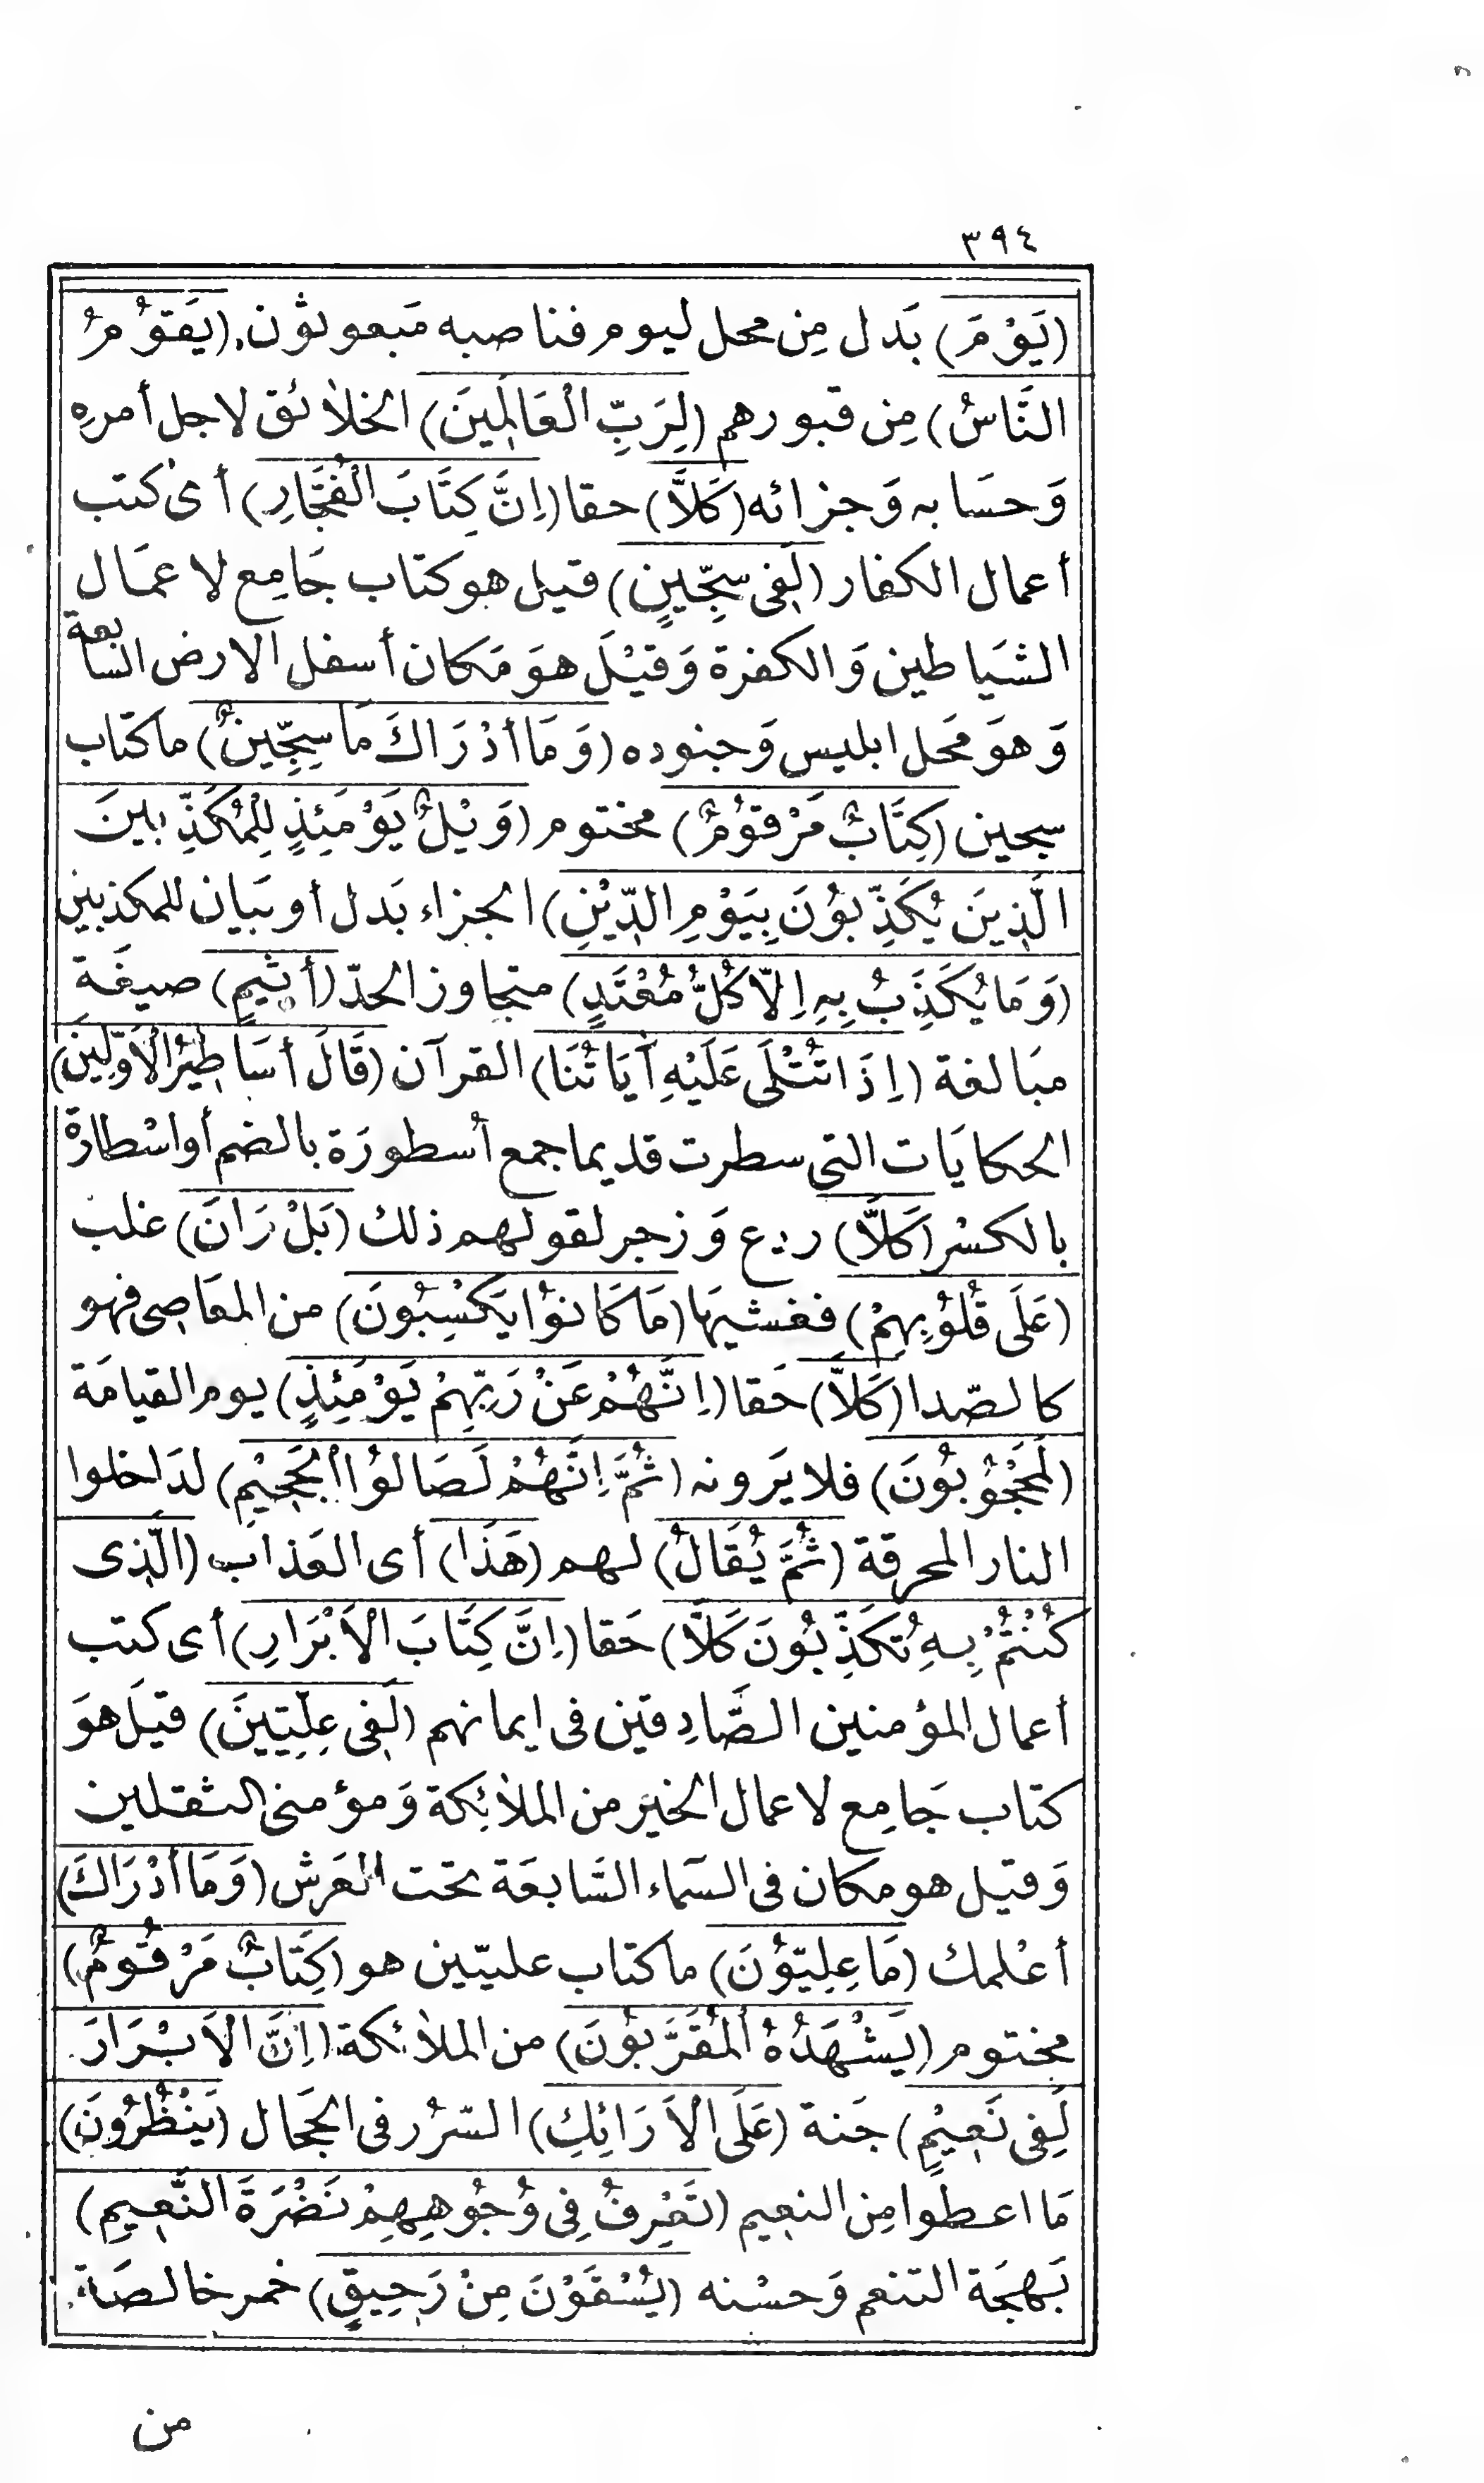 ٣٩٤
(يَوْمَ) بَدل مِن محل ليوم فناصبه مَبعوثون (يَقُوْمُ
النَّاسُ) مِن قبورهم (لِرَبِّ الْعَالَمِينَ) الخلائق لاجل أمره
وَحسَابه وَجزائه (كَلاَّ) حقا (اِنَّ كِتَابَ الْفُجَّارِ) أى كتب
أعمال الكفار (لَفِى سِجِّينٍ) قيل هو كتاب جَامِع لاعمَال
الشيَاطين وَالكفرة وَقيْلَ هوَ مَكان أسفل الارض السابعة
وَهوَ مَحل ابليس وَجنوده (وَمَا أدْرَاكَ مَا سِجِّينٌ) ما كتاب
سجين (كِتَابٌ مَرْقُوْمٌ) مختوم (وَيْلٌ يَوْمَئِذٍ لِلْمُكَذِّبينَ
الَّذِينَ يُكَذِّبُوْنَ بِيَوْمِ الدِّيْنِ) الجزاء بَدل أو بيَان للمكذبين
(وَمَا يُكَذِّبُ بِهِ اِلاَّ كُلُّ مُعْتَدٍ) متجاوز الحدّ (أثِيمٍ) صيغَة
مبَالغة (اِذَا تُتْلَى عَلَيْهِ أيَاتُنَا) القرآن (قَالَ أسَاطِيْرُ الْأوَّلِينَ)
الحكايَات التى سطرت قديما جمع أسطورَة بالضم أو اسْطارة
بالكسْر (كَلاَّ) ردع وَزجر لقولهم ذلك (بَلْ رَانَ) غلب
(عَلَى قُلُوْبِهِمْ) فغشيَها (مَا كَانُوْا يَكْسِبُونَ) من المعَاصى فهو
كالصّدا (كَلاَّ) حَقا (اِنَّهُمْ عَنْ رَبِّهِمْ يَوْمَئِذٍ) يوم القيامَة
(لَمَحْجُوْبُونَ) فلا يَرونه (ثُمَّ اِنَّهُمْ لَصَالُوْا الْجَحِيْمِ) لدَاخلوا
النار المحرقة (ثُمَّ يُقَالُ) لهم (هَذَا) أى العَذاب (الَّذِى
كُنْتُمْ بِهِ تُكَذِّبُونَ كَلاَّ) حَقا (اِنَّ كِتَابَ الْاَبْرَارِ) أى كتب
أعمال المؤمنين الصَّادِقين فى ايمانهم (لَفِى عِلِّيّينَ) قيَل هوَ
كتاب جَامِع لاعمال الخيَر من الملائِكة وَمؤمنى الثقلين
وَقيل هو مكان فى السَماء السَّابعَة تحت العَرش (وَمَا أدْرَاكَ)
أعْلمك (مَا عِلِيّوْنَ) ما كتاب عليّين هو (كِتَابٌ مَرْقُومٌ)
مختوم (يَشْهَدُهُ الْمُقَرَّبُونَ) من الملائكة (اِنَّ الْاَبْرَارَ
لَفِى نَعِيْمٍ) جَنة (عَلَى الْاَرَائِكِ) السّرُر فى الحجَال (يَنْظُرُونَ)
مَا اعطوا مِن النعيم (تَعْرِفُ فِى وُجُوْهِهِمْ نَضْرَةَ النَّعِيمِ)
بَهجَة التنعم وَحسْنه (يُسْقَوْنَ مِنْ رَحِيقٍ) خمر خالصَة
من